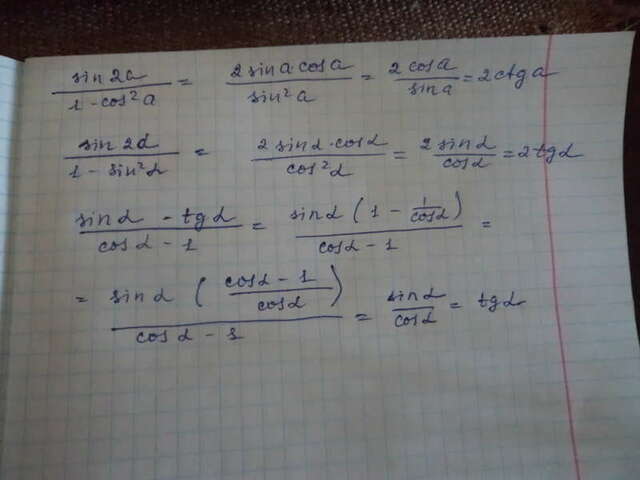 sin 2a / 1 - cos²a = 2 sin a cos a / sin² a = 2 cos a / sin a = 2 ctg a
sin 2α / 1 - sin²α = 2 sin α · cos α / cos² α = 2 sin α / cos α = 2 tg α
sin α - tg α / cos α - 1 = sin α (1 - 1/cos α) / cos α - 1 =
= sin α (cos α - 1 / cos α) / cos α - 1 = sin α / cos α = tg α